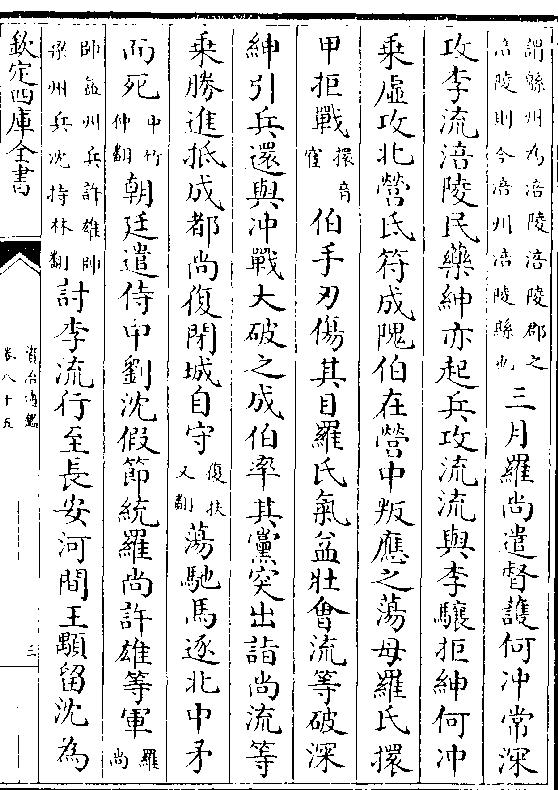 謂緜州為涪陵涪陵郡之
涪陵則今涪州涪陵縣也
三月羅尚遣督護何沖常深
攻李流涪陵民藥紳亦起兵攻流流與李驤拒紳何沖
乘虛攻北營氐符成隗伯在營中叛應之蕩母羅氏擐
甲拒戰
擐音
宦
伯手刃傷其目羅氏氣益壯會流等破深
紳引兵還與沖戰大破之成伯率其黨突出詣尚流等
乘勝進抵成都尚復閉城自守
復扶
又翻
蕩馳馬逐北中矛
而死
中竹
仲翻
朝廷遣侍中劉沈假節統羅尚許雄等軍
羅尚
帥益州兵許雄帥
梁州兵沈持林翻
討李流行至長安河間王顒留沈為
欽定四庫全書
資治通鑑
卷八十五
三